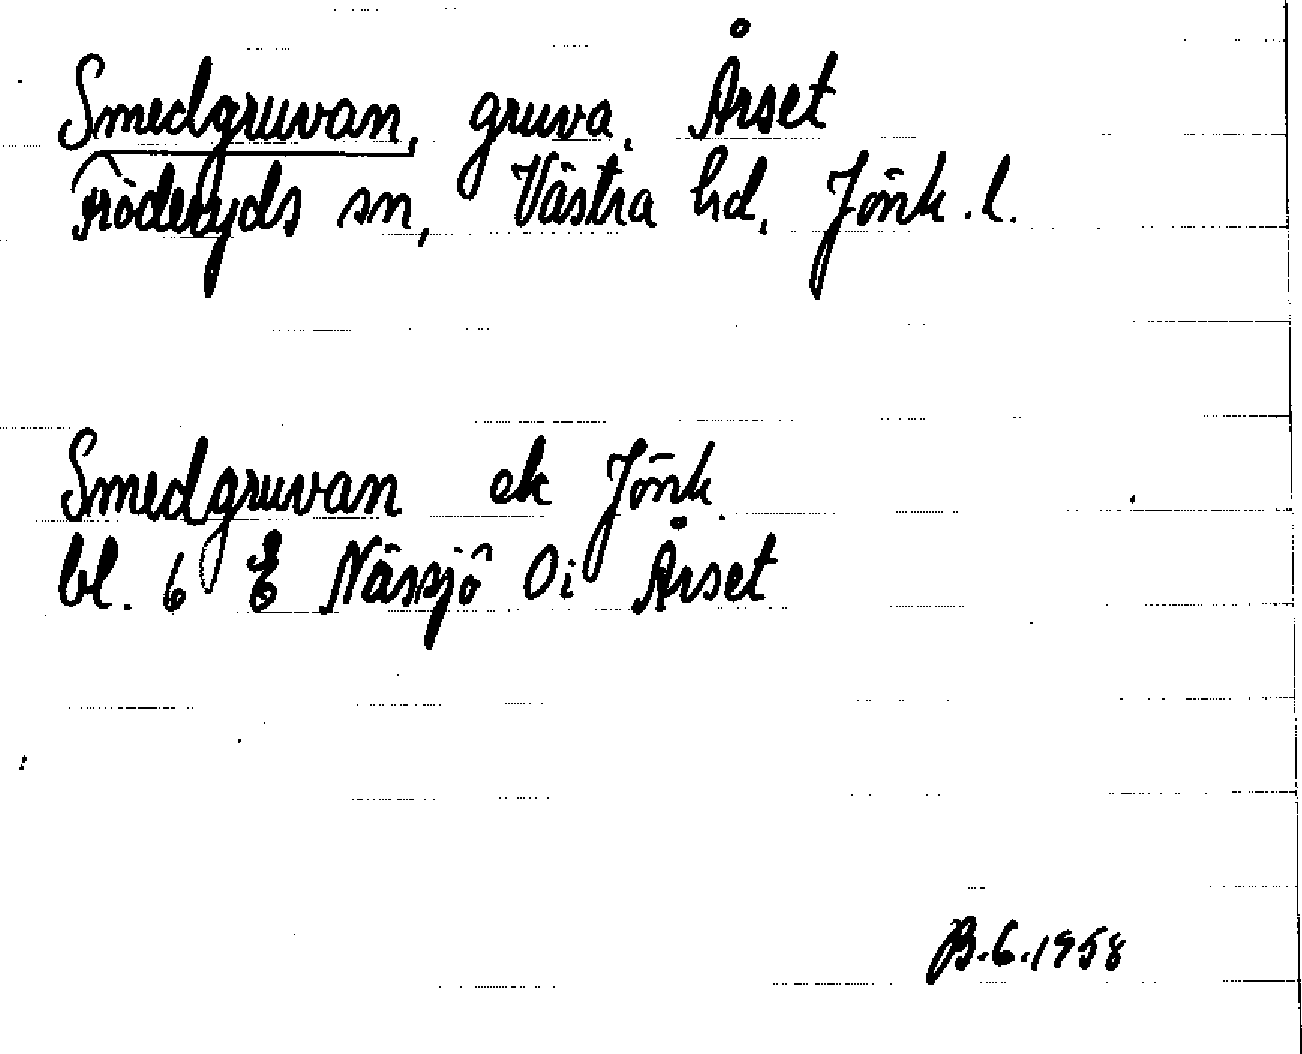 Smedgruvan, gruva, Årset
Fröderyds sn, Västra hd, Jönk. l.
Smedgruvan ek Jönk.
bl. 6 E Nässjö Oi Årset
B.G. 1958